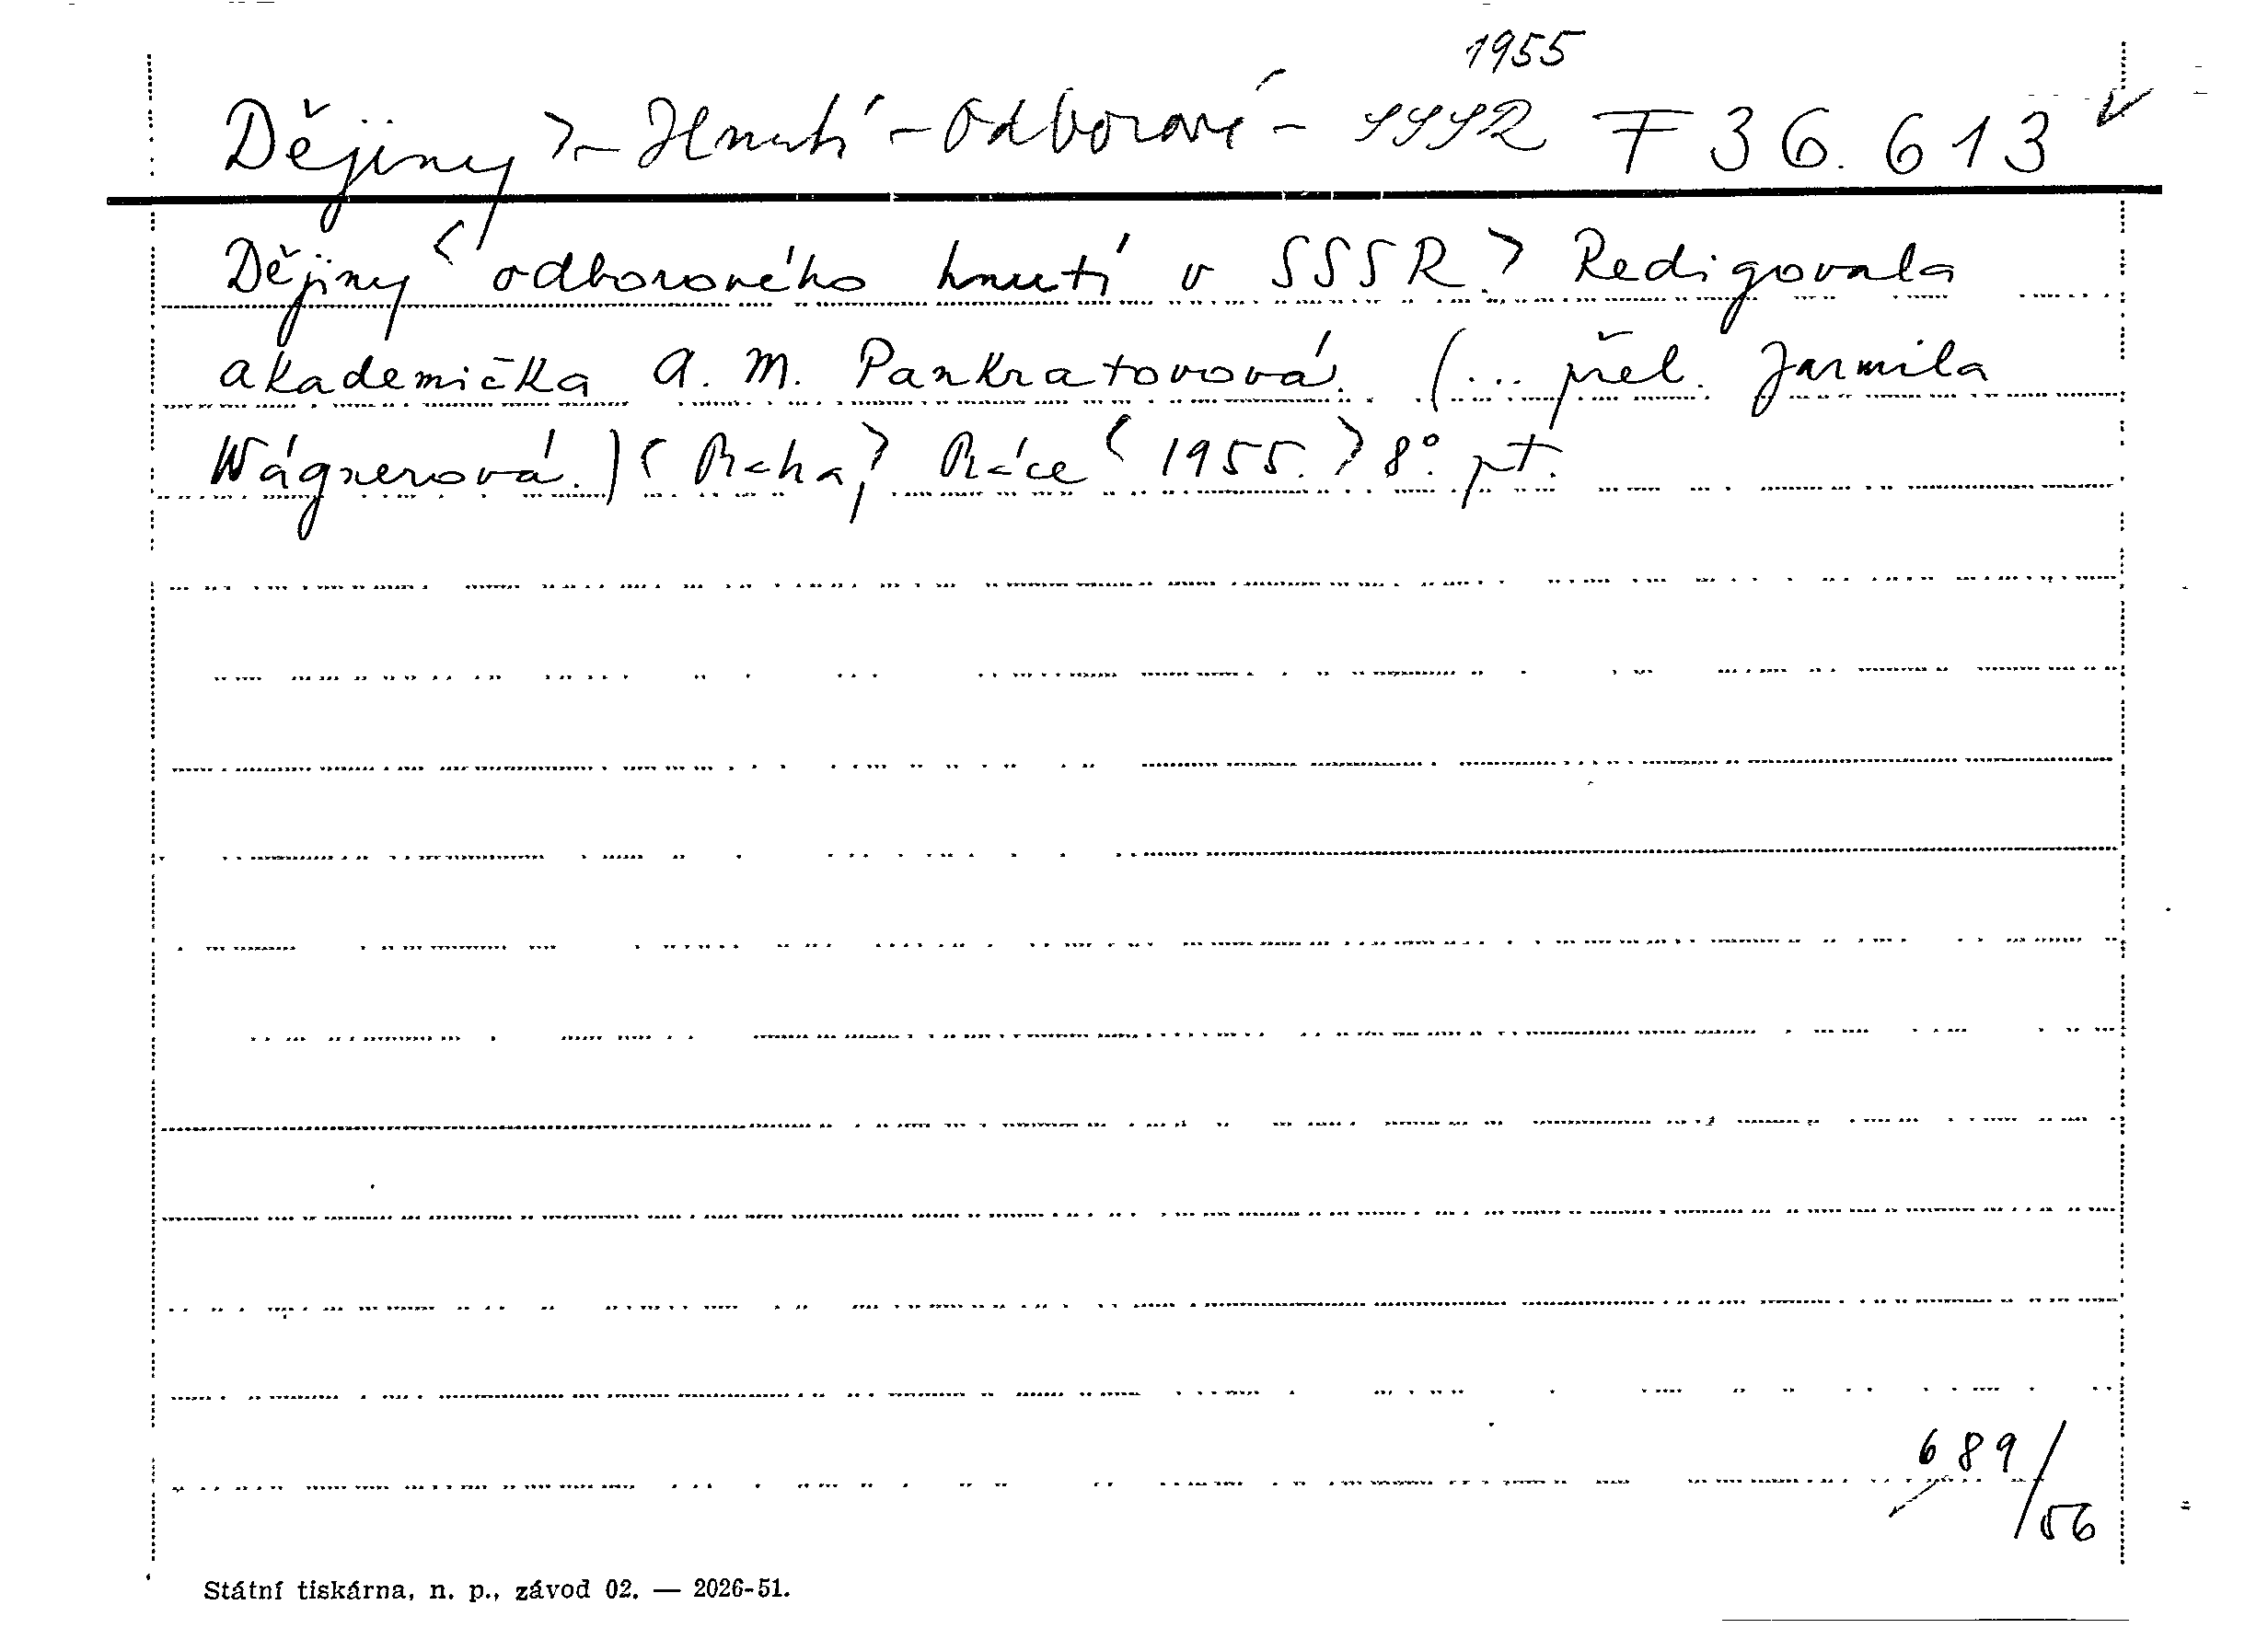 1955
Dějiny > - Hnutí - Odborové - SSSR F 36.613
Dějiny < odborového hnutí v SSSR. > Redigovala
akademička A. M. Pankratovová. (... přel. Jarmila
Wágnerová.) < Praha, > Práce < 1955. > 8°. pt.
689/56
Státní tiskárna, n. p., závod 02. — 2026-51.